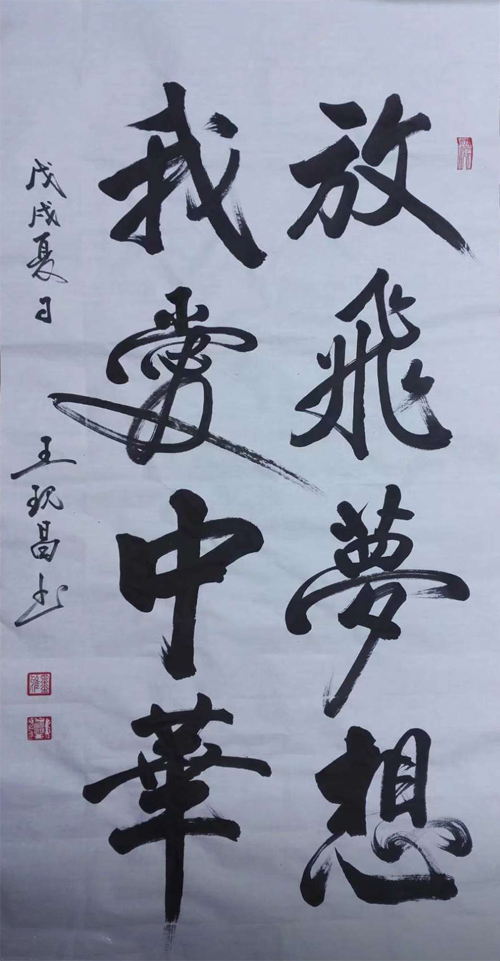 放飛夢想
我愛中華
戊戌夏日
王昌书